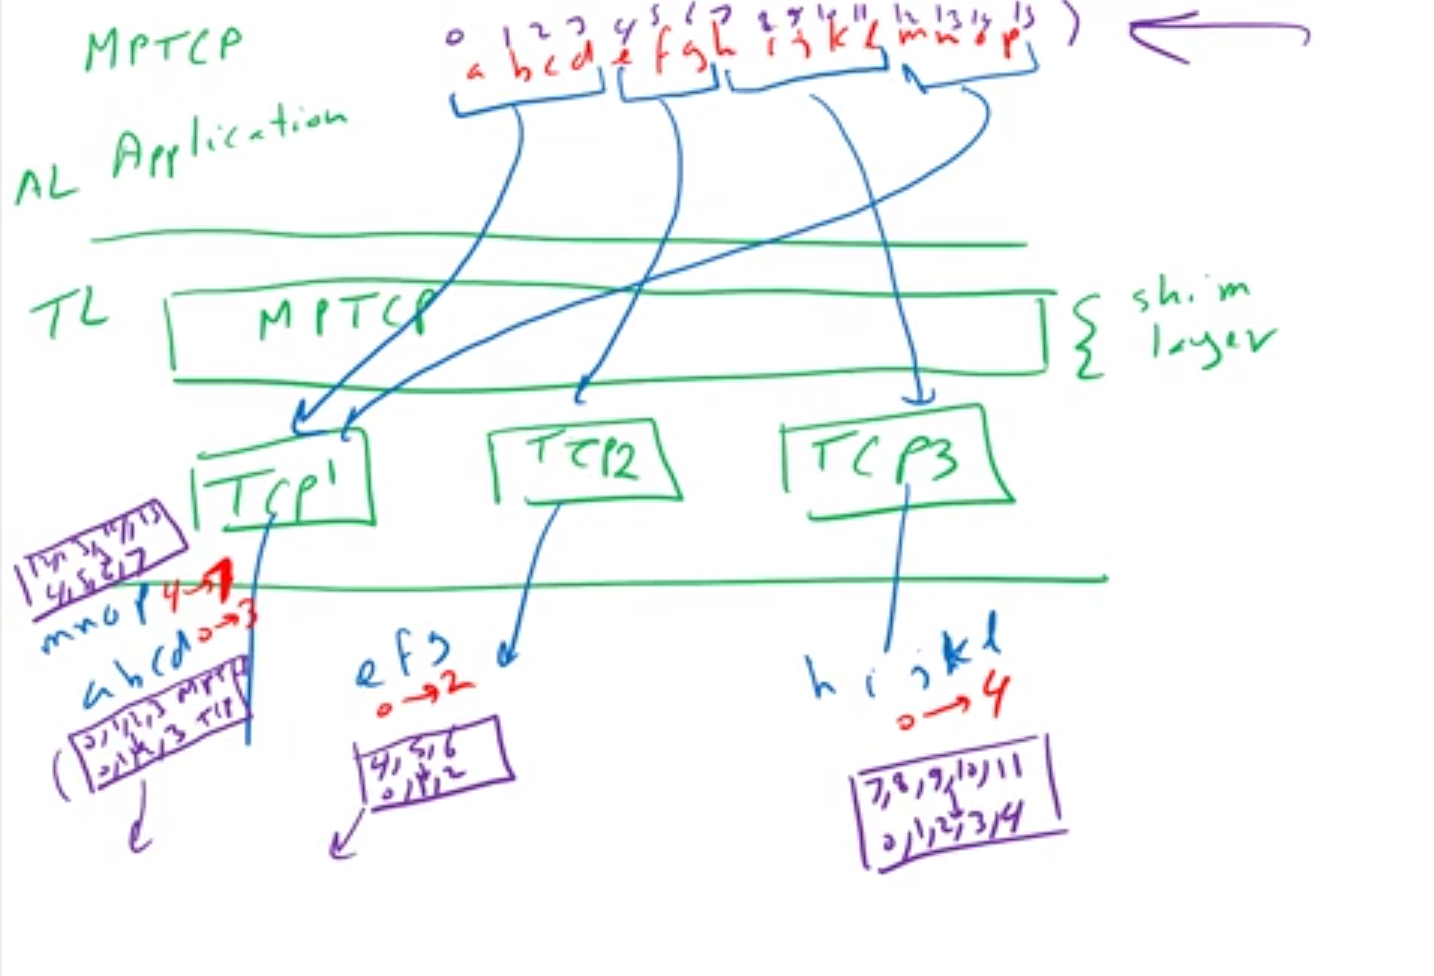 0 1 2 3 4 5 6 7 8 9 10 11 12 13 14 15 )
MPTCP
a b c d e f g h i j k l m n o p
Application
AL
TL
MPTCP
shim
layer
TCP1
TCP2
TCP3
12, 13, 14, 15
4, 5, 6, 7
mnop 4→7
abcd 0→3
0, 1, 2, 3 MPT
0, 1, 2, 3 TCP
efg
0→2
4, 5, 6
0, 1, 2
h i j k l
0→4
7, 8, 9, 10, 11
0, 1, 2, 3, 4